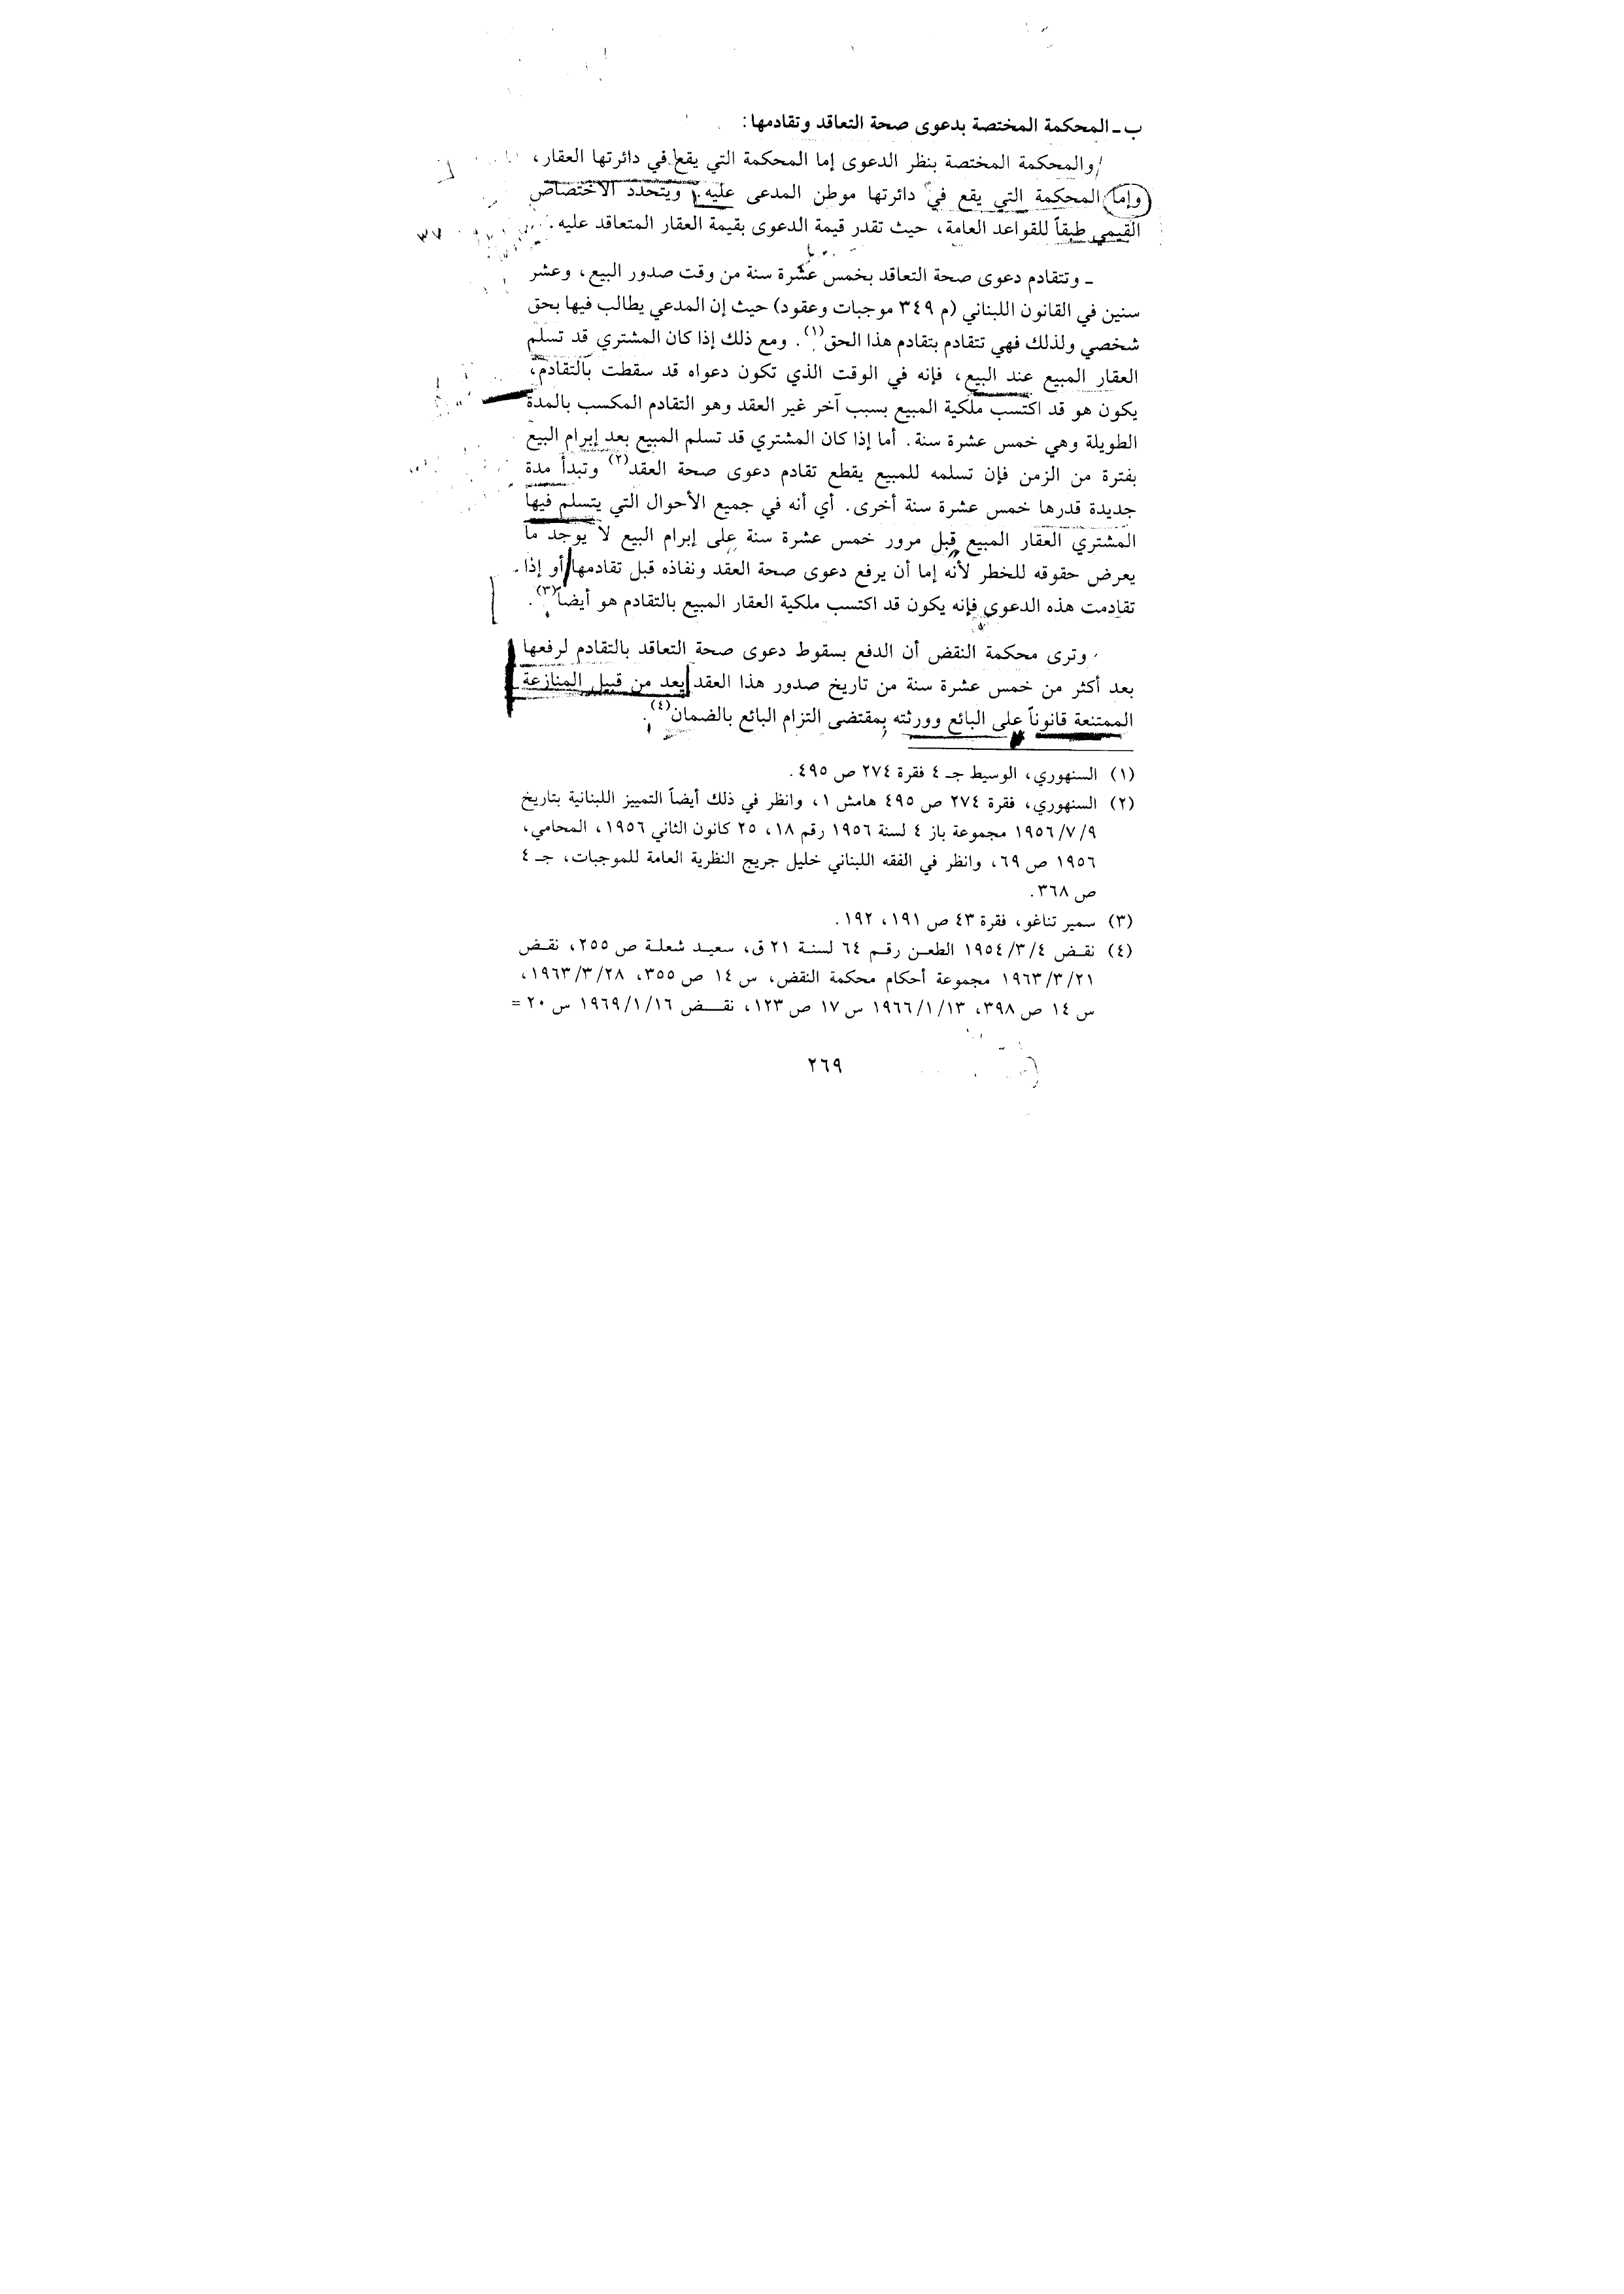 ب ـ المحكمة المختصة بدعوى صحة التعاقد وتقادمها:
والمحكمة المختصة بنظر الدعوى إما المحكمة التي يقع في دائرتها العقار،
وإما المحكمة التي يقع في دائرتها موطن المدعى عليه. ويتحدد الاختصاص
القيمي طبقاً للقواعد العامة، حيث تقدر قيمة الدعوى بقيمة العقار المتعاقد عليه.
ـ وتتقادم دعوى صحة التعاقد بخمس عشرة سنة من وقت صدور البيع، وعشر
سنين في القانون اللبناني (م ٣٤٩ موجبات وعقود) حيث إن المدعي يطالب فيها بحق
شخصي ولذلك فهي تتقادم بتقادم هذا الحق(١). ومع ذلك إذا كان المشتري قد تسلم
العقار المبيع عند البيع، فإنه في الوقت الذي تكون دعواه قد سقطت بالتقادم،
يكون هو قد اكتسب ملكية المبيع بسبب آخر غير العقد وهو التقادم المكسب بالمدة
الطويلة وهي خمس عشرة سنة. أما إذا كان المشتري قد تسلم المبيع بعد إبرام البيع
بفترة من الزمن فإن تسلمه للمبيع يقطع تقادم دعوى صحة العقد(٢) وتبدأ مدة
جديدة قدرها خمس عشرة سنة أخرى. أي أنه في جميع الأحوال التي يتسلم فيها
المشتري العقار المبيع قبل مرور خمس عشرة سنة على إبرام البيع لا يوجد ما
يعرض حقوقه للخطر لأنه إما أن يرفع دعوى صحة العقد ونفاذه قبل تقادمها أو إذا
تقادمت هذه الدعوى فإنه يكون قد اكتسب ملكية العقار المبيع بالتقادم هو أيضاً(٣).
وترى محكمة النقض أن الدفع بسقوط دعوى صحة التعاقد بالتقادم لرفعها
بعد أكثر من خمس عشرة سنة من تاريخ صدور هذا العقد يعد من قبيل المنازعة
الممتنعة قانوناً على البائع وورثته بمقتضى التزام البائع بالضمان(٤).
(١) السنهوري، الوسيط جـ ٤ فقرة ٢٧٤ ص ٤٩٥.
(٢) السنهوري، فقرة ٢٧٤ ص ٤٩٥ هامش ١، وانظر في ذلك أيضاً التمييز اللبنانية بتاريخ
٩/ ٧/ ١٩٥٦ مجموعة باز ٤ لسنة ١٩٥٦ رقم ١٨، ٢٥ كانون الثاني ١٩٥٦، المحامي،
١٩٥٦ ص ٦٩، وانظر في الفقه اللبناني خليل جريج النظرية العامة للموجبات، جـ ٤
ص ٣٦٨.
(٣) سمير تناغو، فقرة ٤٣ ص ١٩١، ١٩٢.
(٤) نقـض ٤/ ٣/ ١٩٥٤ الطعـن رقـم ٦٤ لسنـة ٢١ ق، سعيـد شعلـة ص ٢٥٥، نقـض
٢١/ ٣/ ١٩٦٣ مجموعة أحكام محكمة النقض، س ١٤ ص ٣٥٥، ٢٨/ ٣/ ١٩٦٣،
س ١٤ ص ٣٩٨، ١٣/ ١/ ١٩٦٦ س ١٧ ص ١٢٣، نقـــض ١٦/ ١/ ١٩٦٩ س ٢٠ =
٢٦٩